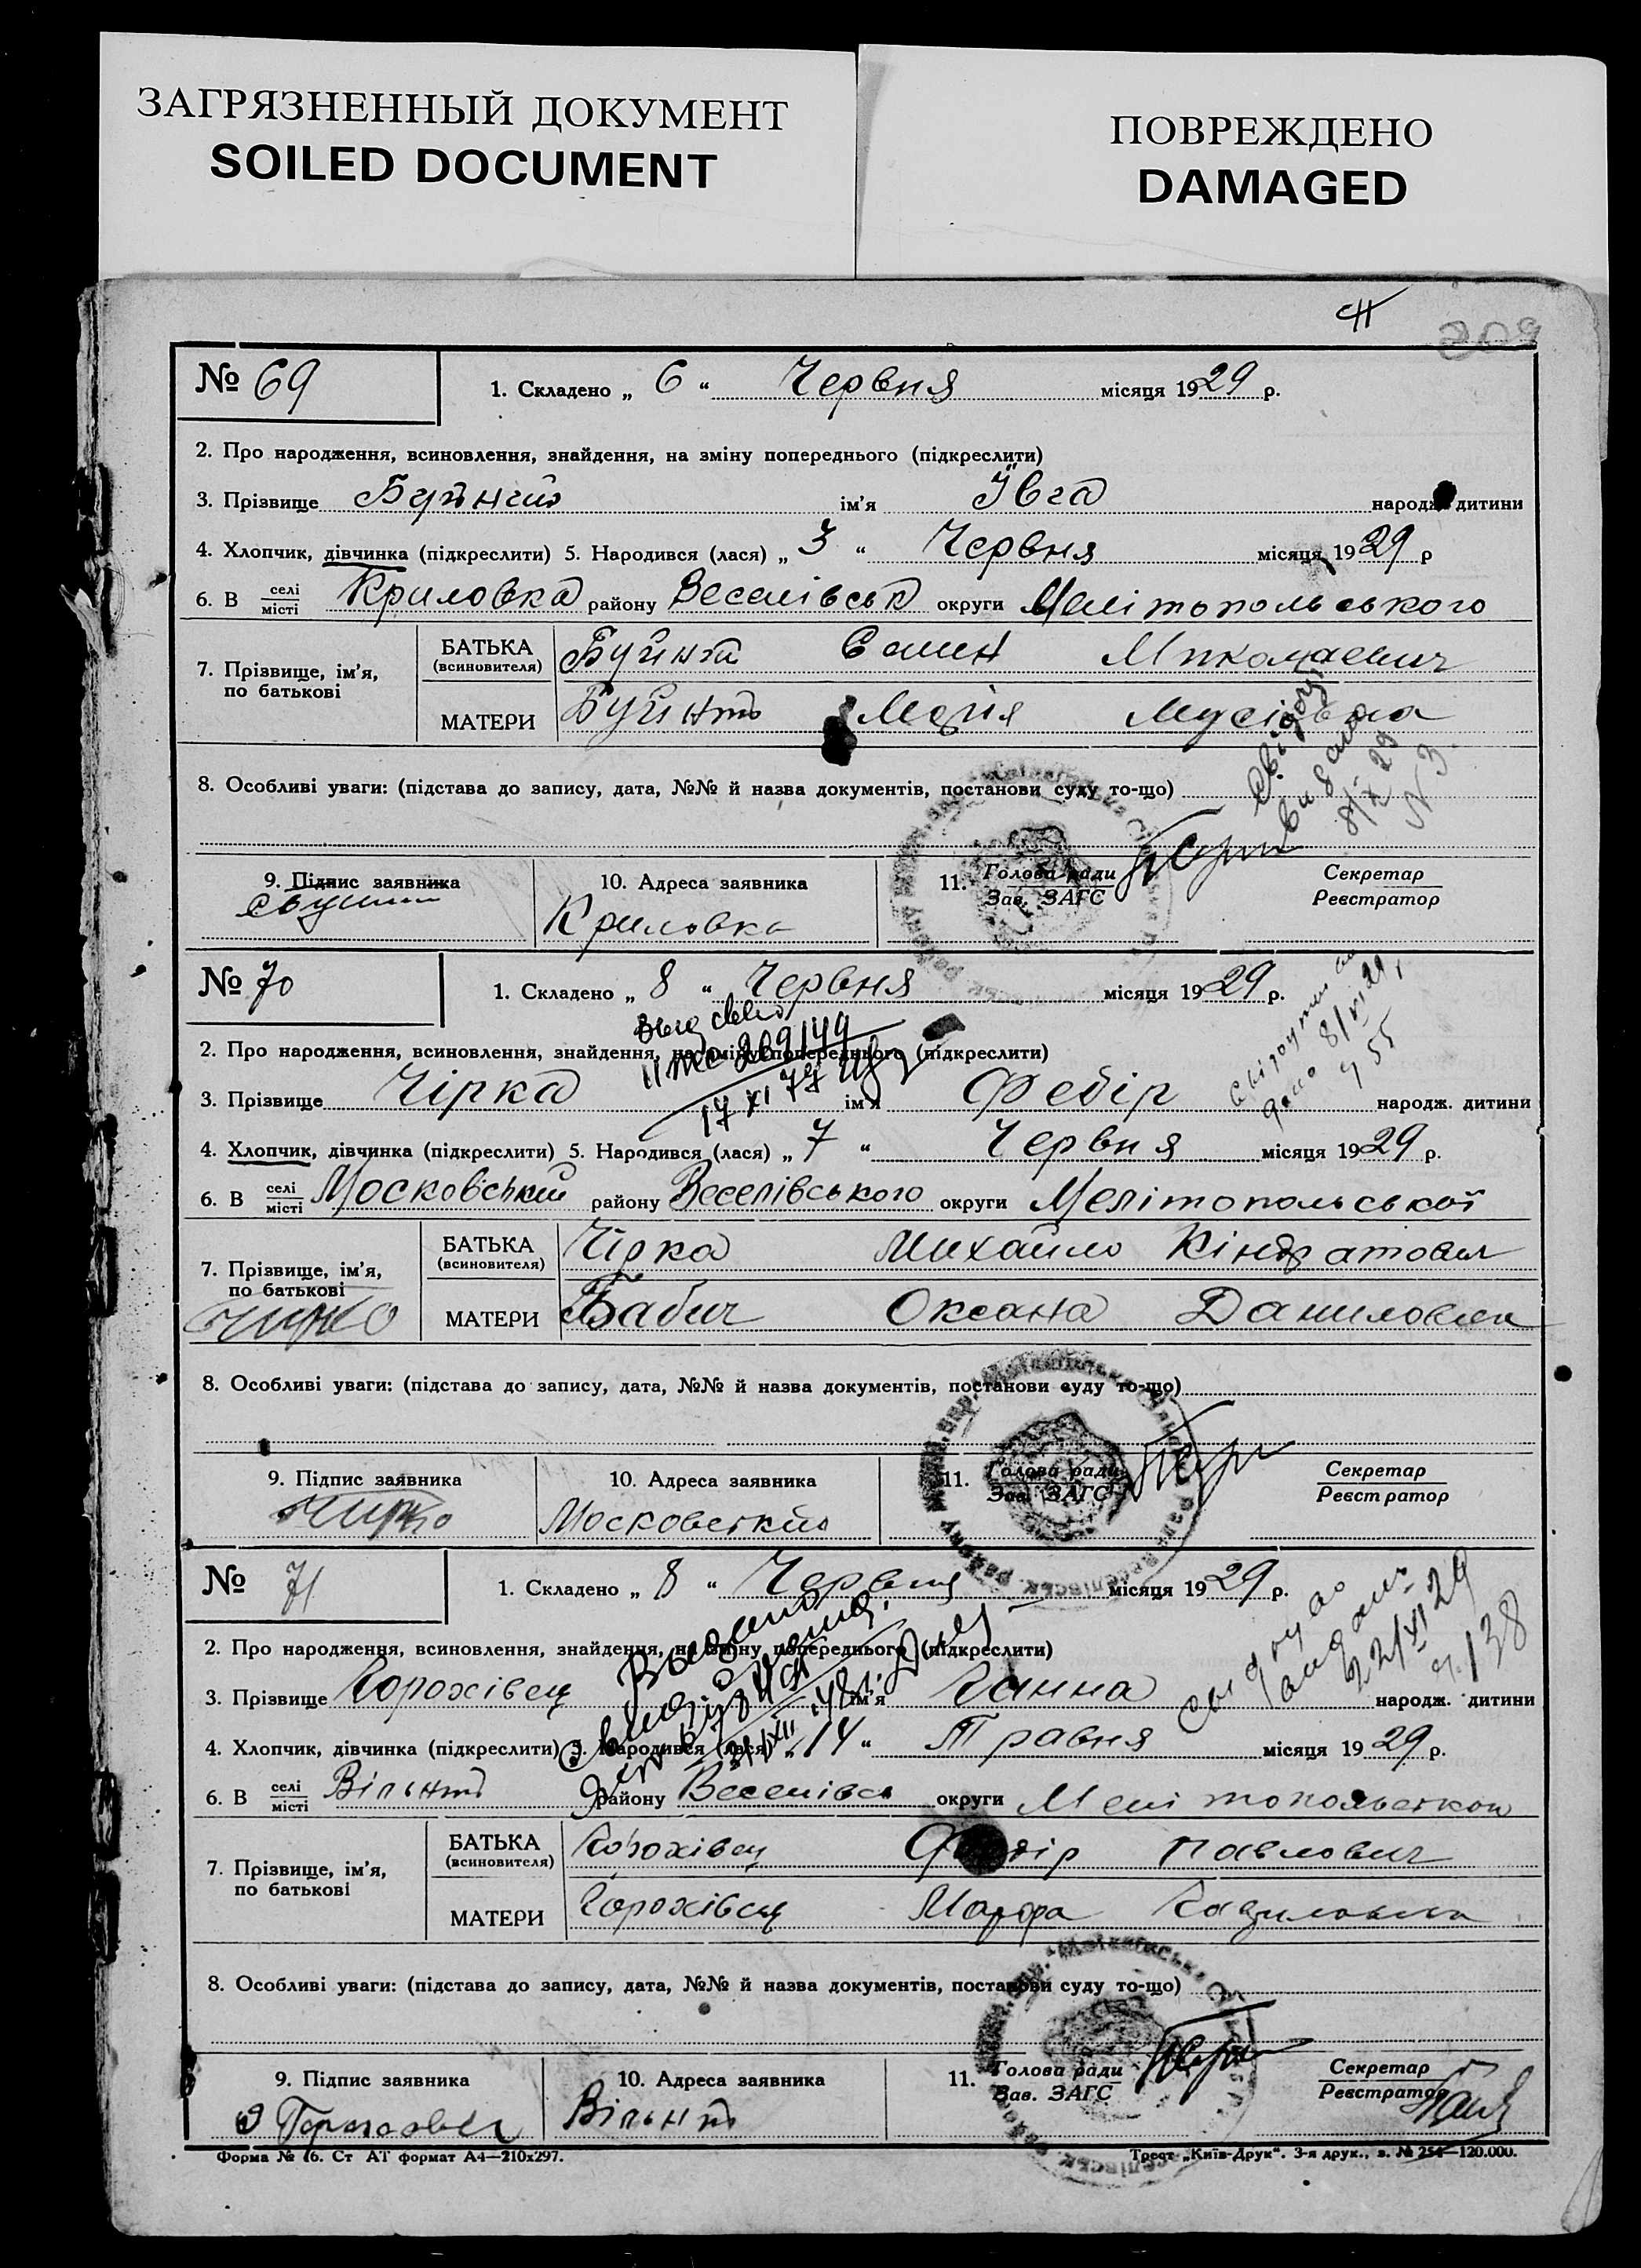 ЗАГРЯЗНЕННЫЙ ДОКУМЕНТ
SOILED DOCUMENT
ПОВРЕЖДЕНО
DAMAGED
209
№ 69
1. Складено „ 6 “ Червня місяця 1929 р.
2. Про народження, всиновлення, знайдення, на зміну попереднього (підкреслити)
3. Прізвище ім'я Ївга народж. дитини
4. Хлопчик, дівчинка (підкреслити) 5. Народився (лася) „ 3 “ Червня місяця 1929 р
6. В селі/місті Криловка району Веселівськ округи Мелітопольського
7. Прізвище, ім'я, по батькові
БАТЬКА (всиновителя) Миколаевич
МАТЕРИ Марія Мусіївна
Видано 8/X 29
N 3.
8. Особливі уваги: (підстава до запису, дата, №№ й назва документів, постанови суду то-що)
9. Підпис заявника
10. Адреса заявника
Криловка
11. Голова ради
Зав. ЗАГС
Секретар
Реєстратор
№ 70
1. Складено „ 8 “ Червня місяця 1929 р.
2. Про народження, всиновлення, знайдення, на зміну попереднього (підкреслити)
3. Прізвище Чірка ім'я Федір народж. дитини
17 XI 77
8/VI 29
ч 55
4. Хлопчик, дівчинка (підкреслити) 5. Народився (лася) „ 7 “ Червня місяця 1929 р.
6. В селі/місті Московський району Веселівського округи Мелітопольської
7. Прізвище, ім'я, по батькові
БАТЬКА (всиновителя) Чірка Михайло Кіндратович
МАТЕРИ Бабич Оксана Даниловна
Чирко
8. Особливі уваги: (підстава до запису, дата, №№ й назва документів, постанови суду то-що)
9. Підпис заявника
Чирко
10. Адреса заявника
11. Голова ради
Зав. ЗАГС
Секретар
Реєстратор
№ 71
1. Складено „ 8 “ Червня місяця 1929 р.
2. Про народження, всиновлення, знайдення, на зміну попереднього (підкреслити)
3. Прізвище Горохівец ім'я Ганна народж. дитини
22/XI 29
ч. 138
4. Хлопчик, дівчинка (підкреслити) 5. Народився (лася) „ 14 “ Травня місяця 1929 р.
6. В селі/місті району Веселівск округи
7. Прізвище, ім'я, по батькові
БАТЬКА (всиновителя) Горохівец Федір Павлович
МАТЕРИ Горохівец Марфа
8. Особливі уваги: (підстава до запису, дата, №№ й назва документів, постанови суду то-що)
9. Підпис заявника
10. Адреса заявника
11. Голова ради
Зав. ЗАГС
Секретар
Реєстратор
Форма № 76. Ст АТ формат А4—210х297.
Трест „Київ-Друк“. 3-я друк., з. № 254—120.000.